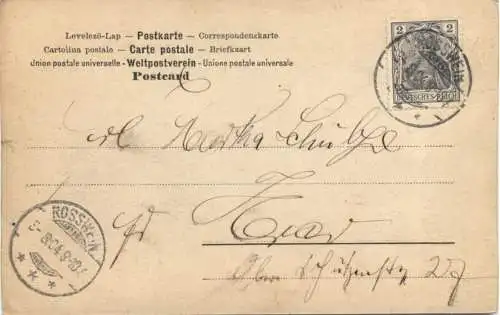 Levelező-Lap — Postkarte — Correspondenzkarte
Cartolina postale — Carte postale — Briefkzart
Union postale universelle - Weltpostverein - Unione postale universale
Postcard
2 2
DEUTSCHES REICH
ROSSWEIN
Martha Schulze
ROSSWEIN
Ober Schützenstr. 27